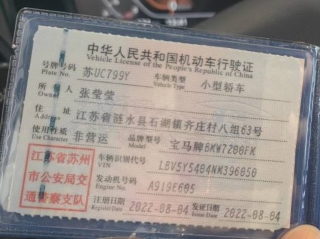 中华人民共和国机动车行驶证
Vehicle License of the People's Republic of China
号牌号码 苏UC799Y 车辆类型 小型轿车
Plate No. Vehicle Type
所有人 张莹莹
Owner
住址 江苏省涟水县石湖镇齐庄村八组63号
Address
使用性质 非营运 品牌型号 宝马牌BMW7200FM
Use Character Model
江苏省苏州市公安局交通警察支队
车辆识别代号 LBV5Y5404NM396050
VIN
发动机号码 A919E605
Engine No.
注册日期 2022-08-04 发证日期 2022-08-04
Register Date Issue Date